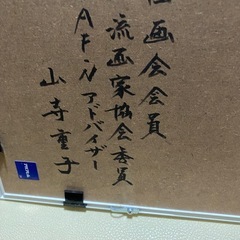 画会会員
流画家協会委員
AFNアドバイザー
山寺重子